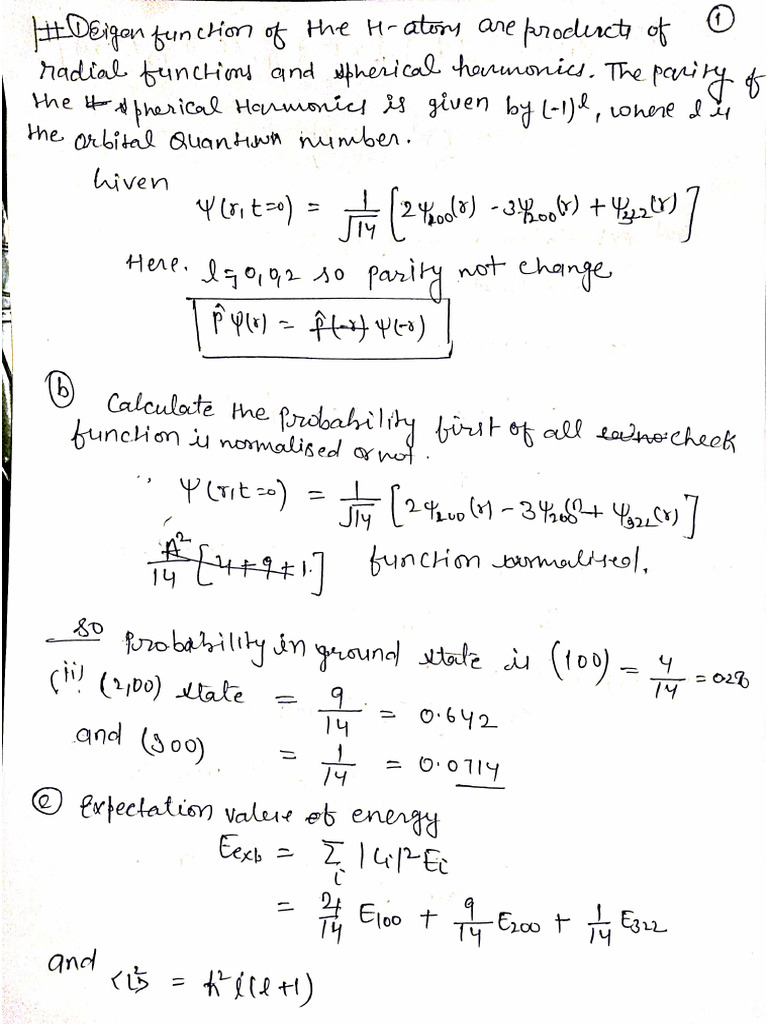 ①
# ① Eigen function of the H-atom are products of
radial functions and spherical harmonics. The parity of
the spherical Harmonics is given by (-1)^l, where l is
the orbital Quantum number.
Given
ψ(r, t=0) = 1/√14 [2ψ₁₀₀(r) - 3ψ₂₀₀(r) + ψ₃₂₂(r)]
Here. l = 0,0,2 so parity not change
P̂ψ(r) = P̂(-r) ψ(-r)
ⓑ Calculate the probability first of all check
function is normalised or not.
∵ ψ(r, t=0) = 1/√14 [2ψ₂₀₀(r) - 3ψ₂₀₀(r) + ψ₃₂₂(r)]
A²/14 [4+9+1] function normalised.
so Probability in ground state is (100) = 4/14 = 028
(ii) (2,00) state = 9/14 = 0.642
and (300) = 1/14 = 0.0714
ⓒ Expectation value of energy
E_exp = Σ_i |C_i|² E_i
= 4/14 E₁₀₀ + 9/14 E₂₀₀ + 1/14 E₃₂₂
and
<L²> = ħ² l(l+1)